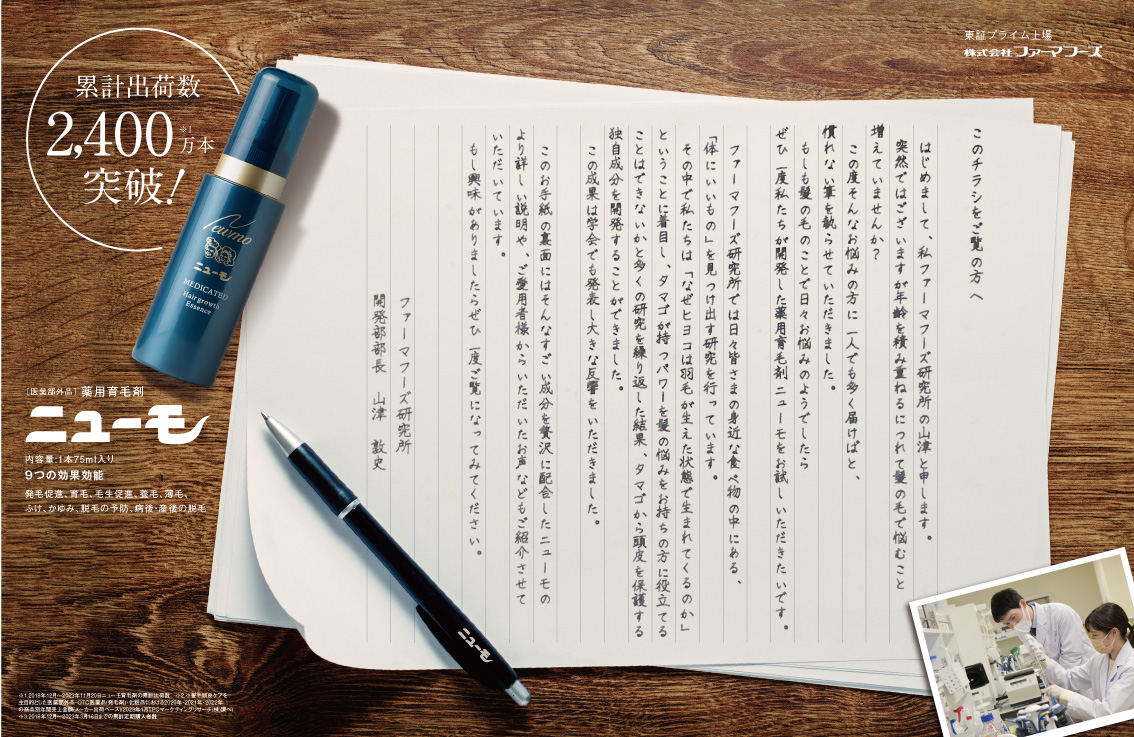 累計出荷数
2,400万本※1
突破!
Newmo
ニューモ
MEDICATED
Hair growth
Essence
［医薬部外品］薬用育毛剤
ニューモ
内容量:1本75ml入り
9つの効果効能
発毛促進、育毛、毛生促進、養毛、薄毛、
ふけ、かゆみ、脱毛の予防、病後・産後の脱毛
東証プライム上場
株式会社 ファーマフーズ
このチラシをご覧の方へ
はじめまして、私ファーマフーズ研究所の山津と申します。
突然ではございますが年齢を積み重ねるにつれて髪の毛で悩むこと
増えていませんか？
この度そんなお悩みの方に一人でも多く届けばと、
慣れない筆を執らせていただきました。
もしも髪の毛のことで日々お悩みのようでしたら
ぜひ一度私たちが開発した薬用育毛剤ニューモをお試しいただきたいです。
ファーマフーズ研究所では日々皆さまの身近な食べ物の中にある、
「体にいいもの」を見つけ出す研究を行っています。
その中で私たちは「なぜヒヨコは羽毛が生えた状態で生まれてくるのか」
ということに着目し、タマゴが持つパワーを髪の悩みをお持ちの方に役立てる
ことはできないかと多くの研究を繰り返した結果、タマゴから頭皮を保護する
独自成分を開発することができました。
この成果は学会でも発表し大きな反響をいただきました。
このお手紙の裏面にはそんなすごい成分を贅沢に配合したニューモの
より詳しい説明や、ご愛用者様からいただいたお声などもご紹介させて
いただいています。
もし興味がありましたらぜひ一度ご覧になってみてください。
ファーマフーズ研究所
開発部部長 山津 敦史
ニューモ
※1 2018年12月〜2023年11月20日ニューモ育毛剤の累計出荷数
※3 2018年12月〜2023年3月16日までの累計定期購入者数